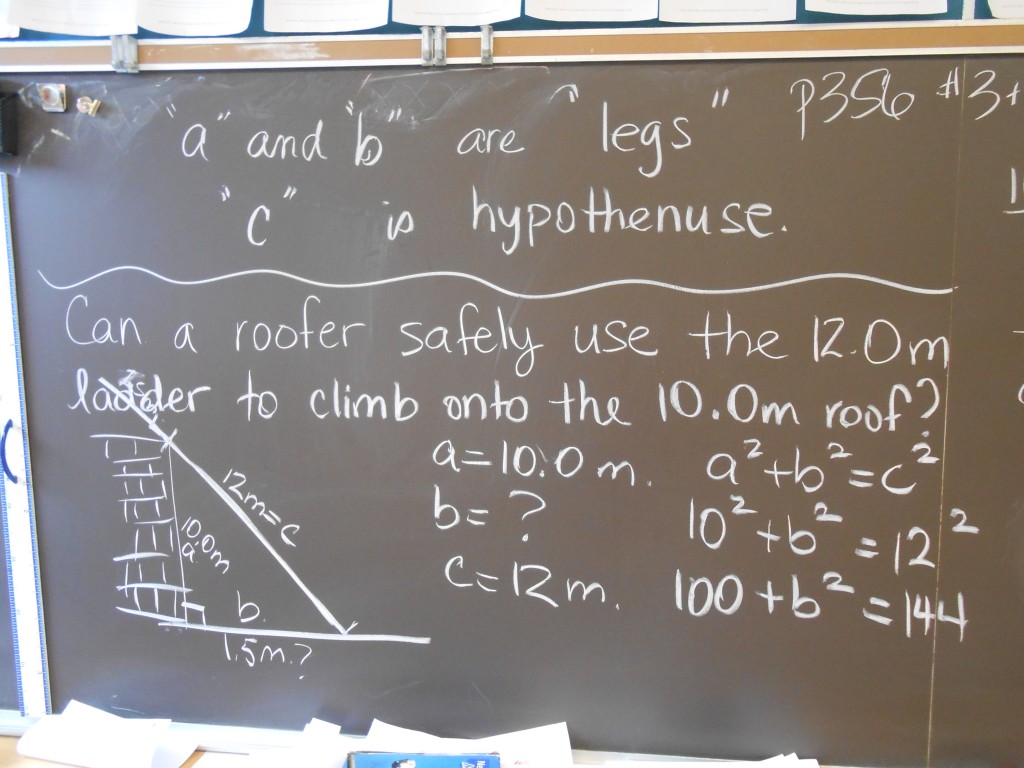 "a" and "b" are "legs"
p356 #3+
"c" is hypothenuse.
Can a roofer safely use the 12.0m
ladder to climb onto the 10.0m roof?
12m=c
10.0m
a
b
1.5m.?
a=10.0m.
b=?
c=12m.
a²+b²=c²
10²+b²=12²
100+b²=144